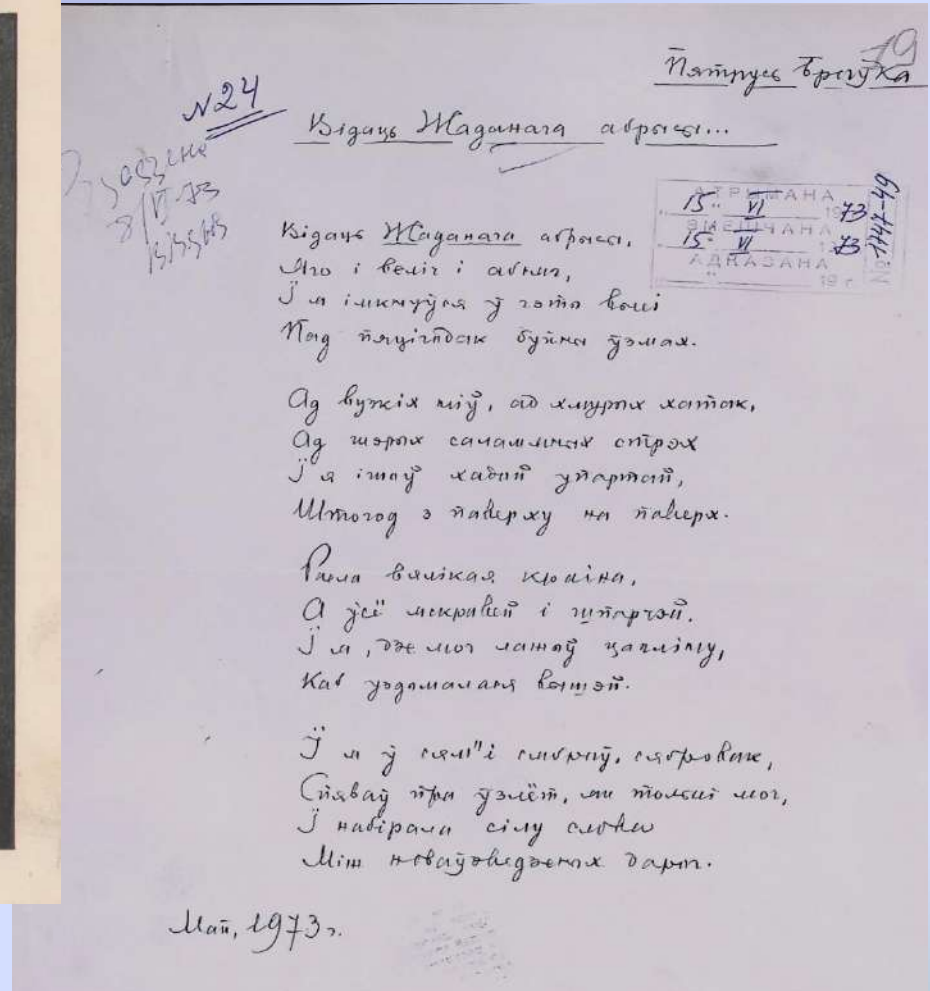 19
Пятрусь Броўка
№24
Відаць Жаданага абрысы...
АТРЫМАНА
15 VI 1973
ЗМЕШЧАНА
15 VI 1973
АДКАЗАНА
19 г.
№ 1747-49
8/VI-73
Відаць Жаданага абрысы,
Яго і веліч і
І я імкнуўся ў гэты высі
Над пяцігодак буйны ўзмах.
Ад вузкіх ніў, ад хмурых хатак,
Ад шэрых саламяных стрэх
І я ішоў хадой упартай,
Штогод з паверху на паверх.
Расла вялікая краіна,
А ўсё яскравей і шпарчэй.
І я, дзе мог клаў цагліну,
Каб уздымалася вышэй.
І я ў сям'і сяброў,
Спяваў пра ўзлёт, як толькі мог,
І набірала сілу слова
Між новаўзведзеных дарог.
Май, 1973 г.